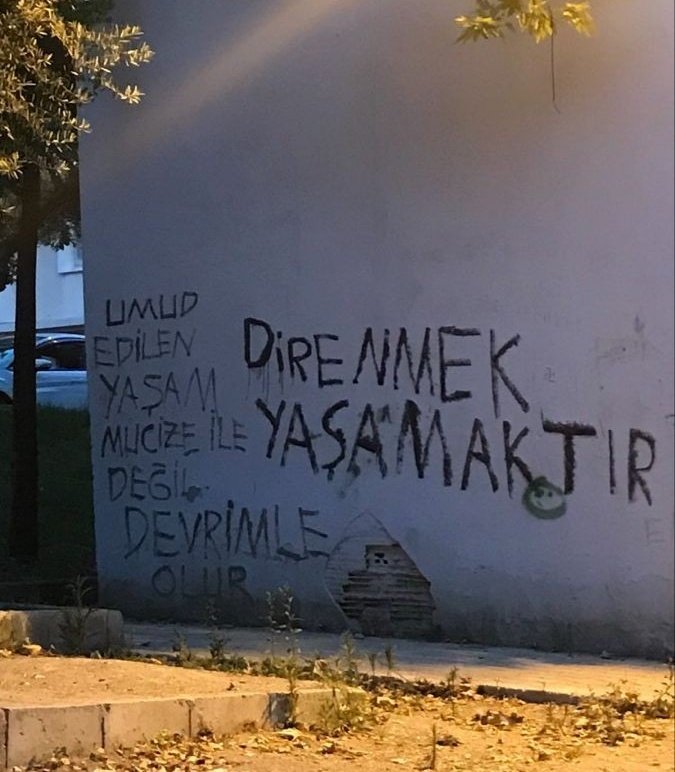 UMUD
EDİLEN
YAŞAM
MUCİZE İLE
DEĞİL
DEVRİMLE
OLUR
DİRENMEK
YAŞAMAKTIR